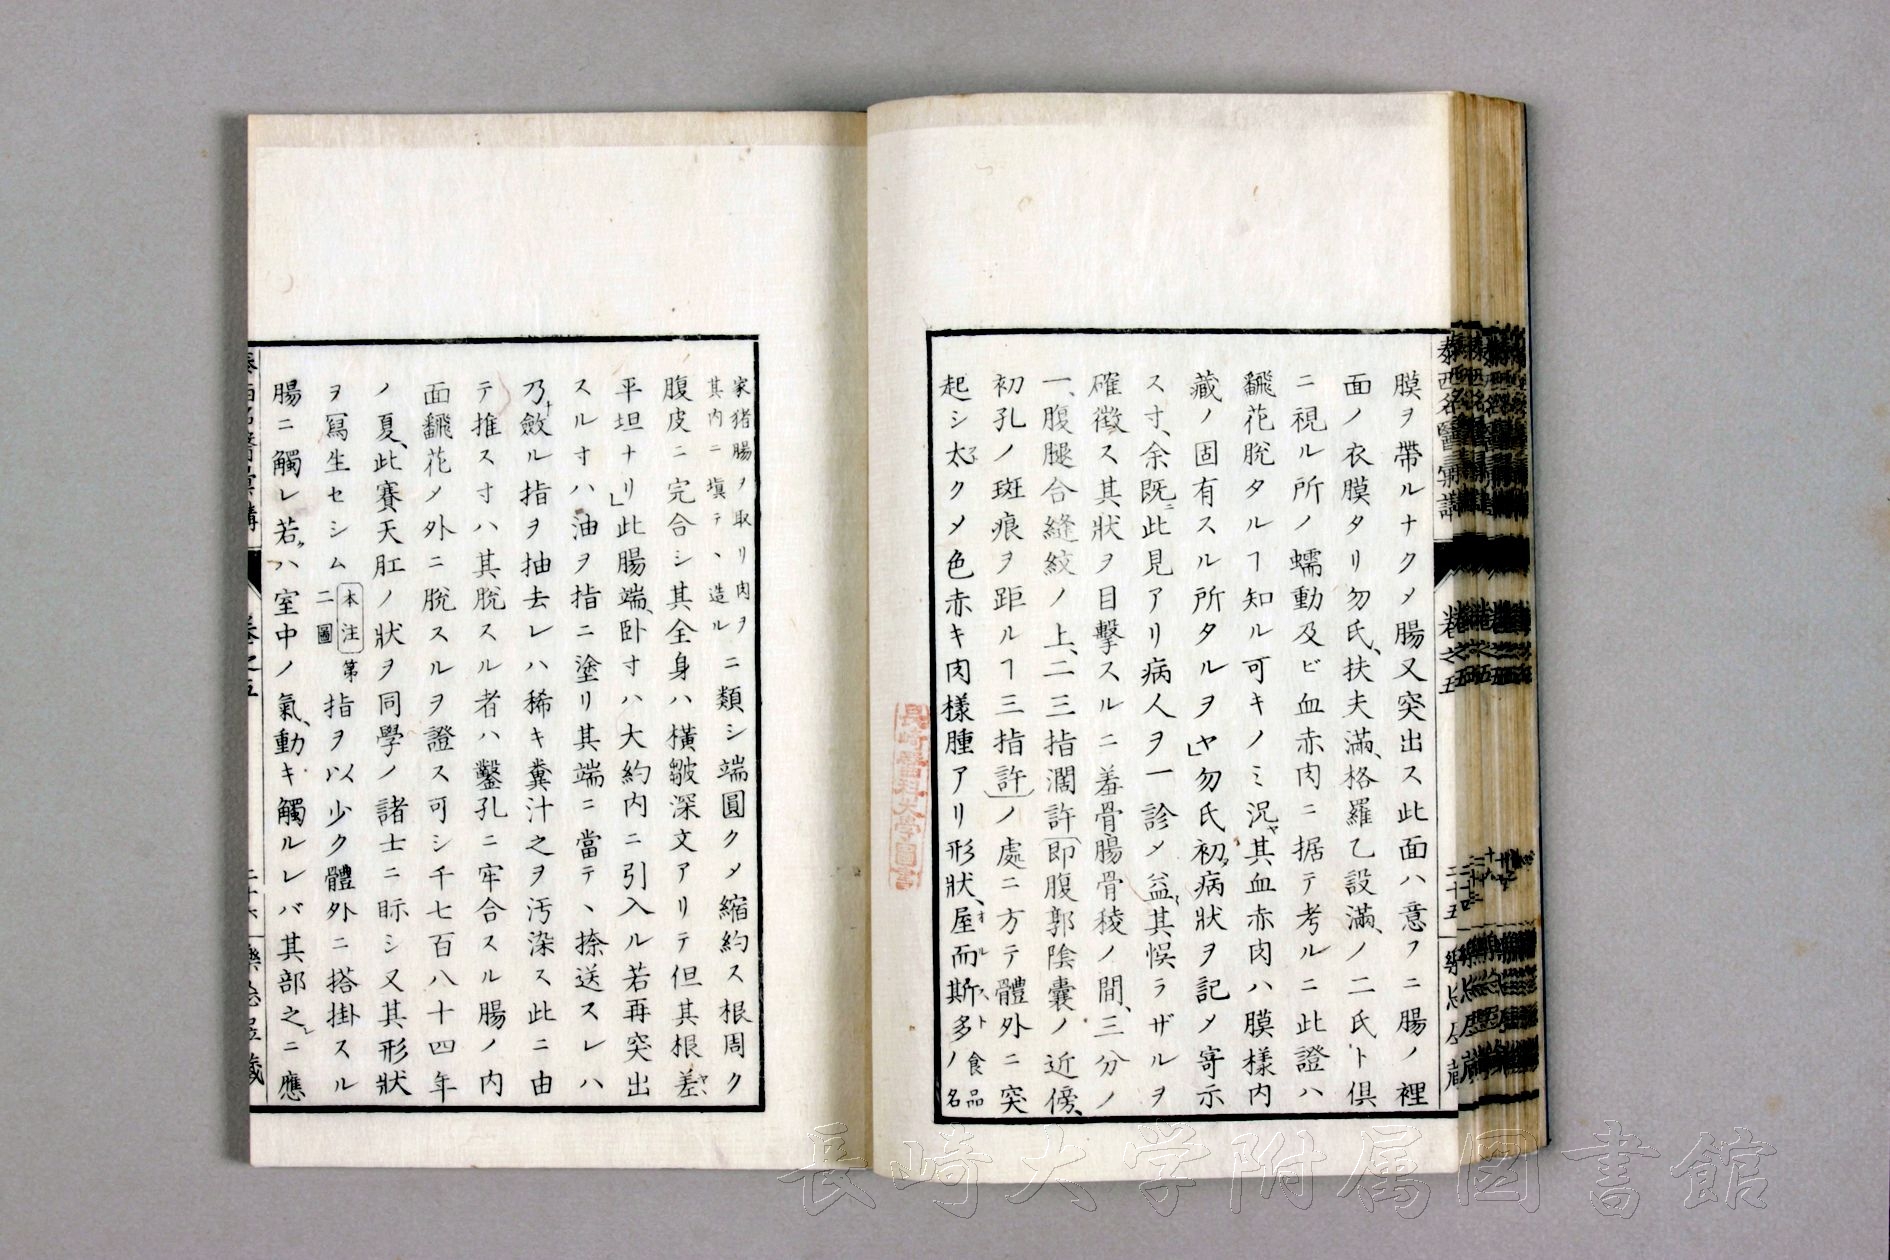 膜ヲ帶ルナクメ腸又突出ス此面ハ意フニ腸ノ裡
面ノ衣膜タリ勿氏、扶夫滿、格羅乙設滿、ノ二氏ト倶
ニ視ル所ノ蠕動及ビ血赤肉ニ据テ考ルニ此證ハ
飜花脫タルヿ知ル可キノミ況ヤ其血赤肉ハ膜樣内
藏ノ固有スル所タルヲヤ」勿氏初メ病狀ヲ記メ寄示
スヿ、余既ニ此見アリ病人ヲ一診メ益其悞ラザルヲ
確徵ス其狀ヲ目擊スルニ羞骨腸骨稜ノ間、三分ノ
一、腹腿合縫紋ノ上、二三指濶許(即腹郭陰囊ノ近傍、
初孔ノ斑痕ヲ距ルヿ三指許)ノ處ニ方テ體外ニ突
起シ太クメ色赤キ肉樣腫アリ形狀、屋而斯多ノ食品名
家猪腸ノ取リ肉ヲ其内ニ塡テヽ造ルニ類シ端圓クメ縮約ス根周ク
腹皮ニ完合シ其全身ハ橫皺深文アリテ但其根差ヤヽ
平坦ナリ」此腸端、卧オハ大約内ニ引入ル若再突出
スルオハ油ヲ指ニ塗リ其端ニ當テヽ捺送スレハ
乃チ斂ル指ヲ抽去レハ稀キ糞汁之ヲ汚染ス此ニ由
テ推スオハ其脫スル者ハ鑿孔ニ牢合スル腸ノ内
面飜花メ外ニ脫スルヲ證ス可シ千七百八十四年
ノ夏、此賽天肛ノ狀ヲ同學ノ諸士ニ眎シ又其形狀
ヲ冩生セシム本注第二圖指ヲ以少ク體外ニ搭掛スル
腸ニ觸レ若クハ室中ノ氣、動キ觸ルレバ其部之レニ應
泰西名醫彙講
卷之五
二十五
樂
長崎醫科大学圖書
長崎大学附属図書館